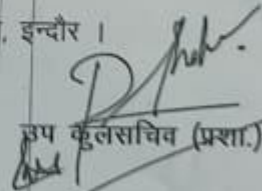 , इन्दौर ।
उप कुलसचिव (प्रशा.)